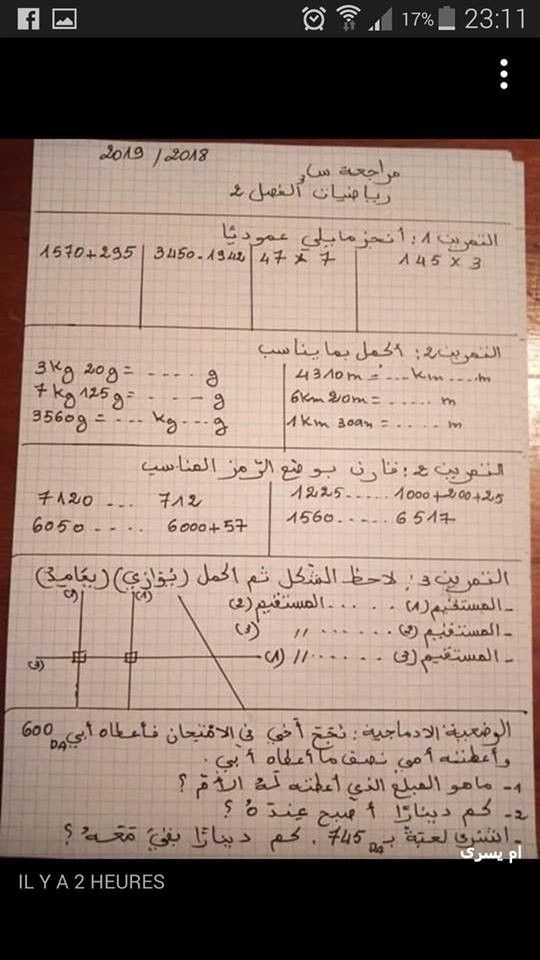 17% 23:11
2019/2018
مراجعة سا3
رياضيات الفصل 2
التمرين 1: أنجز مايلي عموديًا
1570+295 3450-1942 47 x 7 145 x 3
التمرين 2: أكمل بما يناسب
3kg 20g = ..... g
7kg 125g = ..... g
3560g = ... kg ... g
4310m = ... km .... m
6km 20m = ..... m
1km 30m = ..... m
التمرين 2: قارن بوضع الرمز المناسب
7120 ... 712
6050 ..... 6000+57
1225 ..... 1000+200+25
1560 ..... 6517
التمرين 3: لاحظ الشكل ثم أكمل (يُوازي) (يعامد)
- المستقيم (1) ...... المستقيم (2)
- المستقيم (2) ...... // (3)
- المستقيم (3) ...... // (1)
(2) (1)
(3)
الوضعية الادماجية: نجح أخي في الامتحان فأعطاه أبي 600 DA
وأعطته أمي نصف ما أعطاه أبي.
1- ماهو المبلغ الذي أعطته له الأم؟
2- كم دينارًا أصبح عنده؟
- اشترى لعبة بـ 745 DA. كم دينارًا بقي معه؟
ام يسرى
IL Y A 2 HEURES